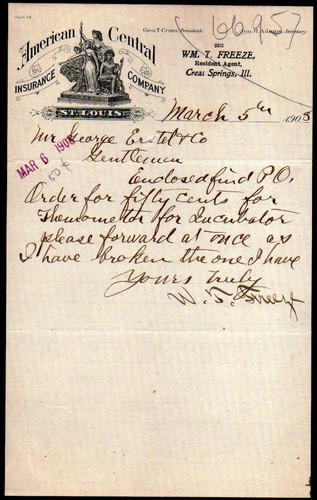 Geo. T. Cram, President.
American Central
INSURANCE COMPANY
ST. LOUIS
[6695]
WM. T. FREEZE,
Resident Agent,
Creal Springs, Ill.
March 5th 1905
Mr George Ertel & Co
MAR 6 1905
50¢
Gentlemen
Enclosed find P.O.
Order for fifty cents for
Themometer for Incubator
please forward at once as
I have broken the one I have
Yours truly
W. T. Freeze